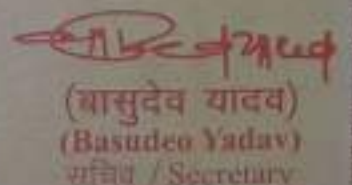 (बासुदेव यादव)
(Basudeo Yadav)
सचिव / Secretary